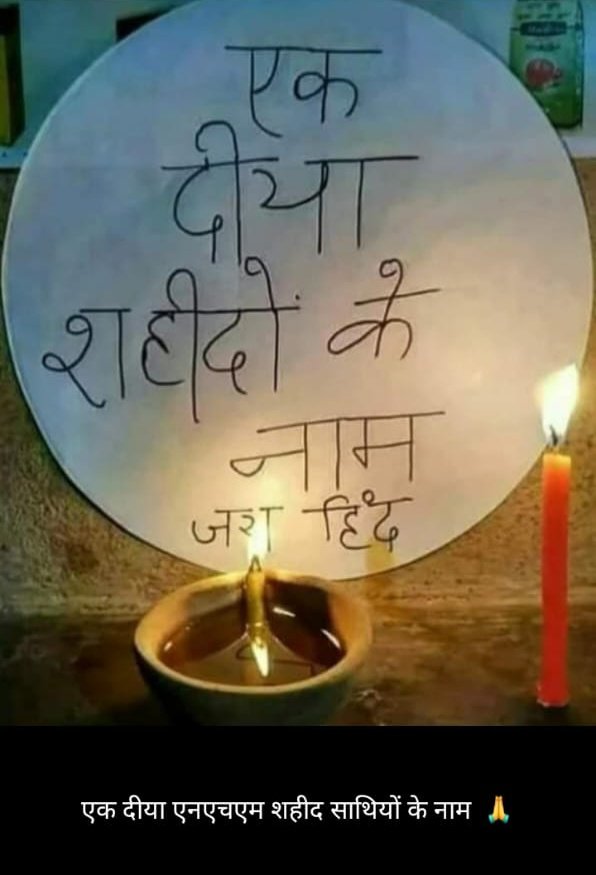 एक
दीया
शहीदों के
नाम
जय हिंद
एक दीया एनएचएम शहीद साथियों के नाम 🙏